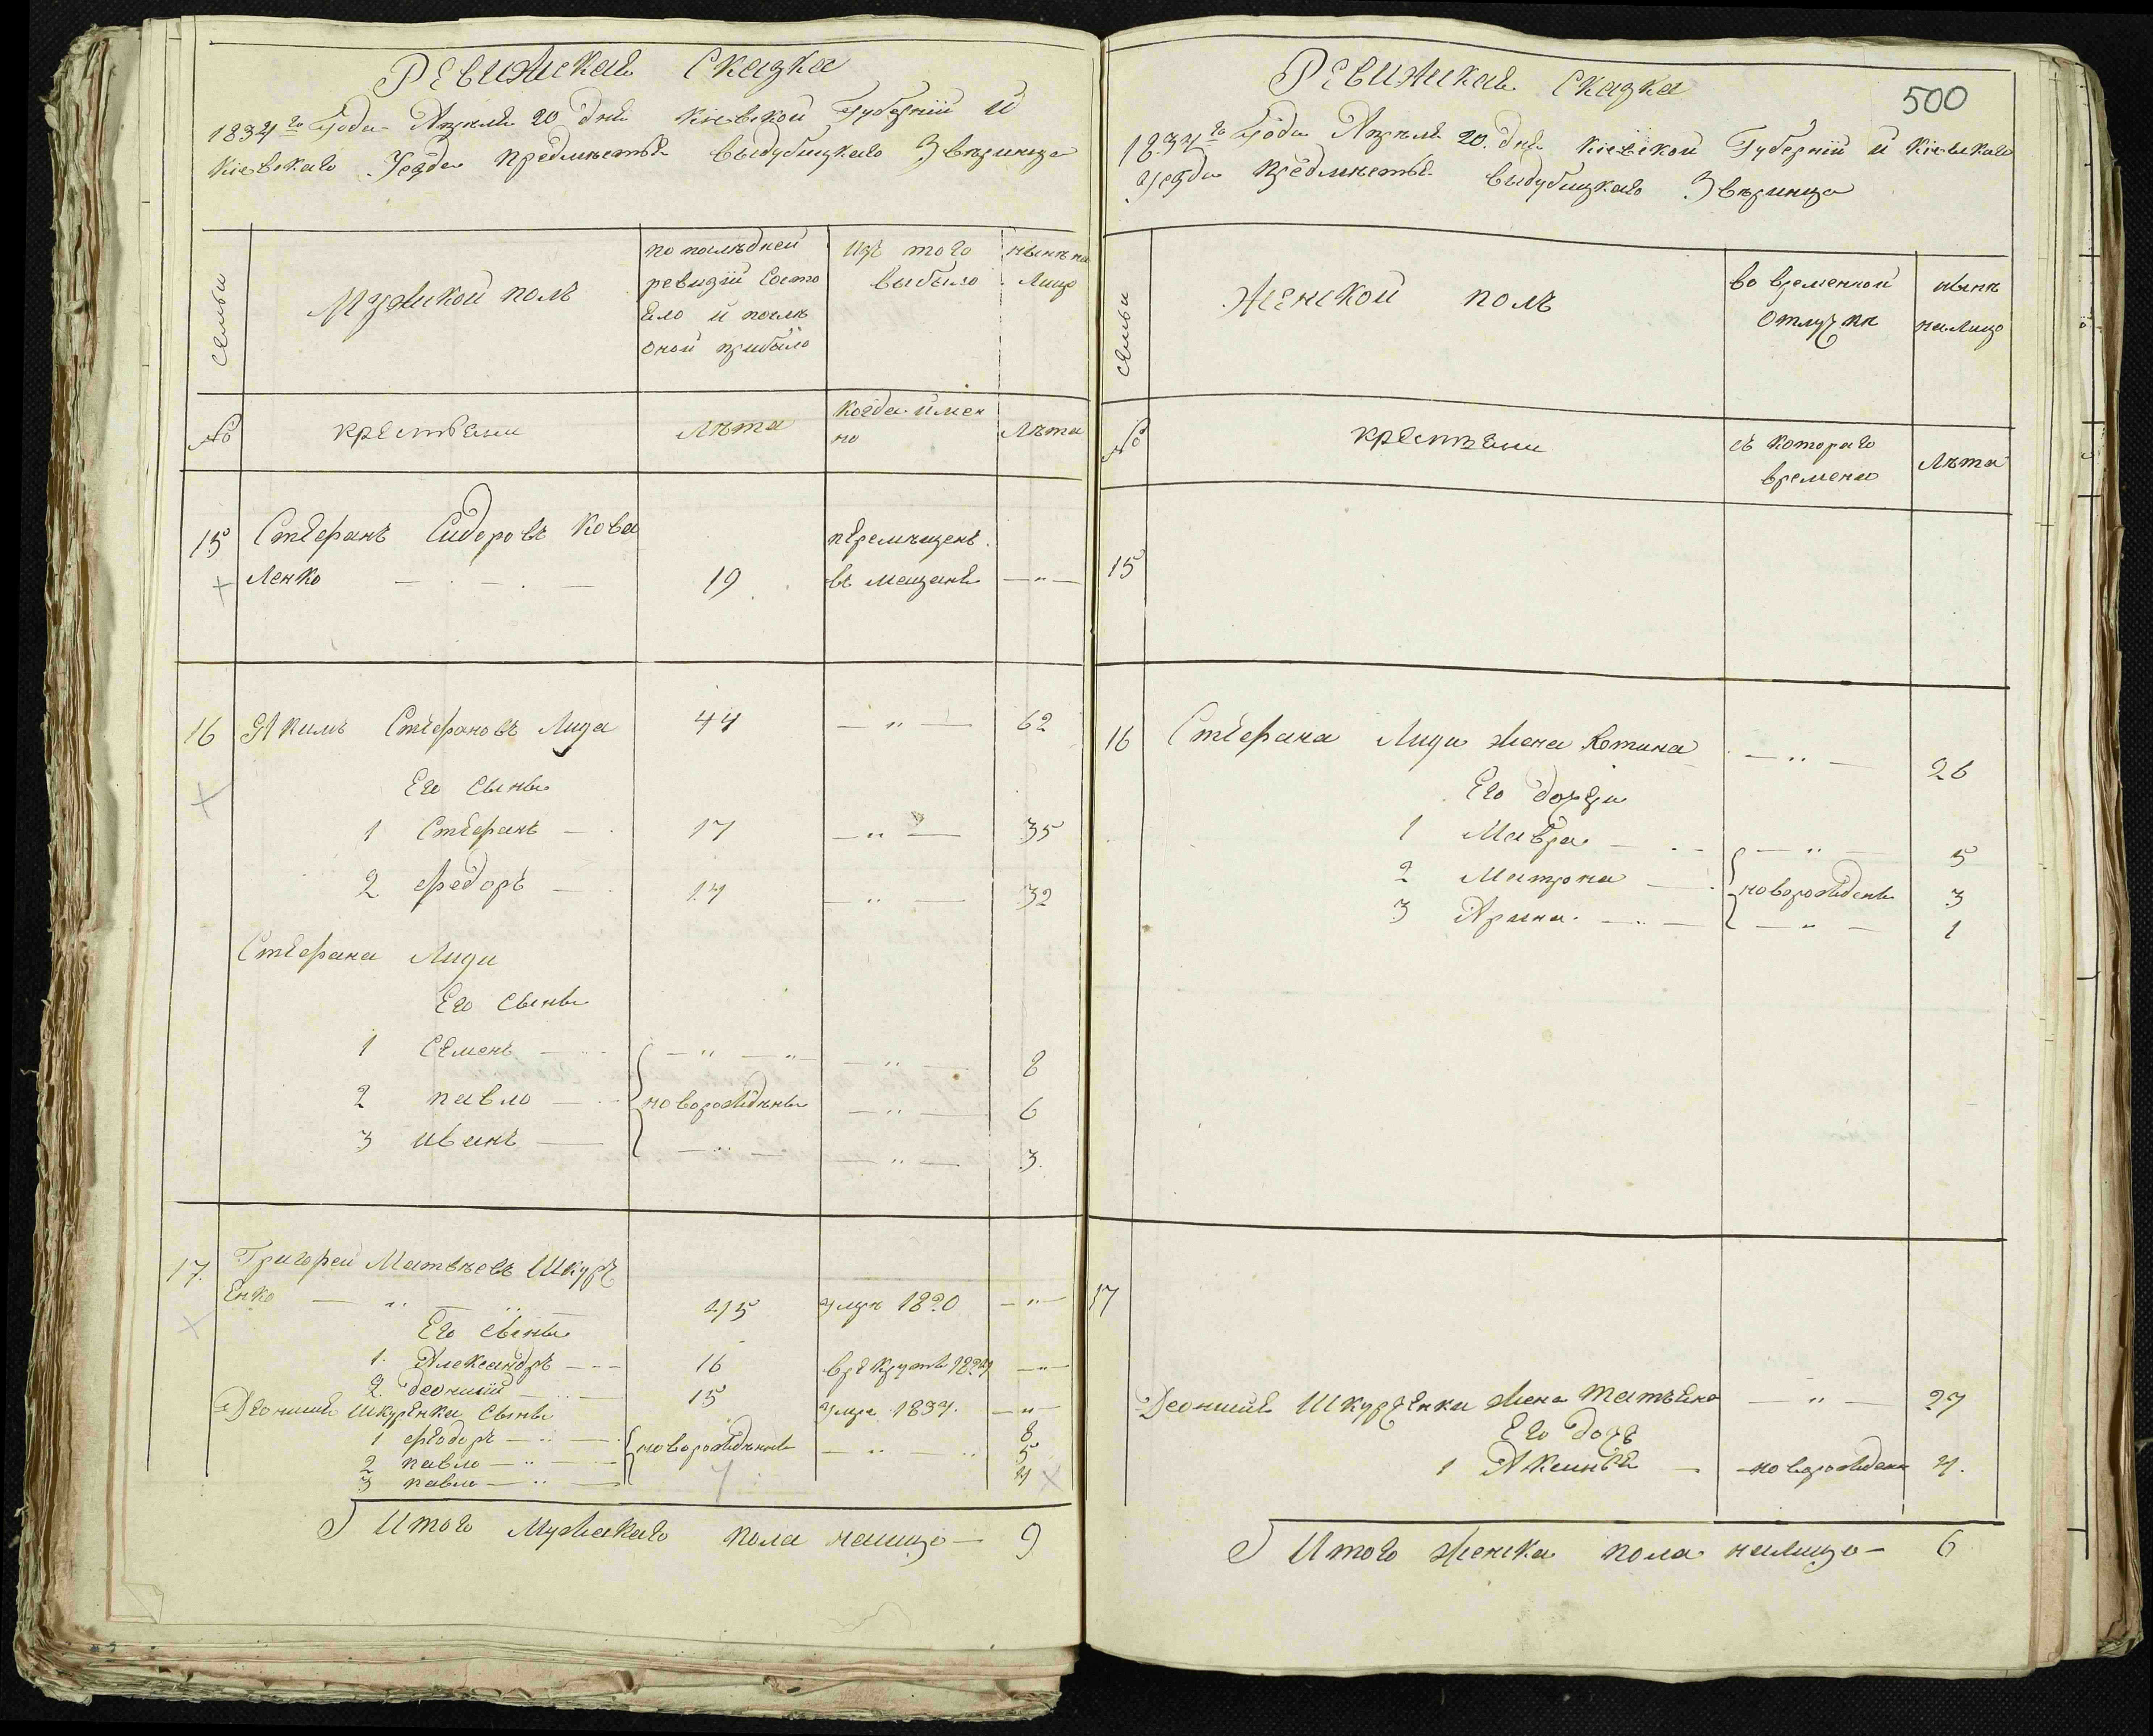 Ревижская Сказка
1834го Года Апреля 20 дня Кіевской Губерніи и
Кіевскаго Уезда предмѣстья Выдубицкаго Звѣринца
семьи
Мужской полъ
по послѣдней
ревизіи Состо
яло и послѣ
Оной прибыло
Изъ того
выбыло
нынѣ на
Лицо
№
крестьяни
Лѣта
когда имен
но
Лѣта
15
Стефанъ Сидоровъ Кова
перемѣщенъ
Ленко
19
въ мещане
16
Якимъ Стефановъ Лида
44
62
Его сыны
1 Стефанъ
17
35
2 Федоръ
14
32
Стефана Лиди
Его сыны
1 Семенъ
8
2 павло
новорожденны
6
3 иванъ
3
17.
Григорей Матвѣевъ Шкур
Енко
45
умре 1820
Его сыны
1. Александръ
16
в рекруты 1824
2. деонисій
15
умре 1834.
Деонисія Шкуренки сыны
1 федоръ
8
2 павло
новорожденны
5
3 павло
4
Итого Мужскаго пола налицо 9
Ревижская Сказка
500
1834го Года Апреля 20. дня Кіевской Губерніи и Кіевскаго
Уезда предмѣстья Выдубицкаго Звѣринца
семьи
Женской полъ
во временной
Отлучки
нынѣ
налицо
№
крестьяни
съ котораго
времени
Лѣта
15
16
Стефана Лиди жена
26
Его дочери
1 Мавра
5
2 Матрона
новорожденны
3
3 Арина
1
17
Деонисія Шкуренки жена Татьяна
27
Его дочь
1 Аксинья
новорожденна
4.
Итого женска пола налицо 6